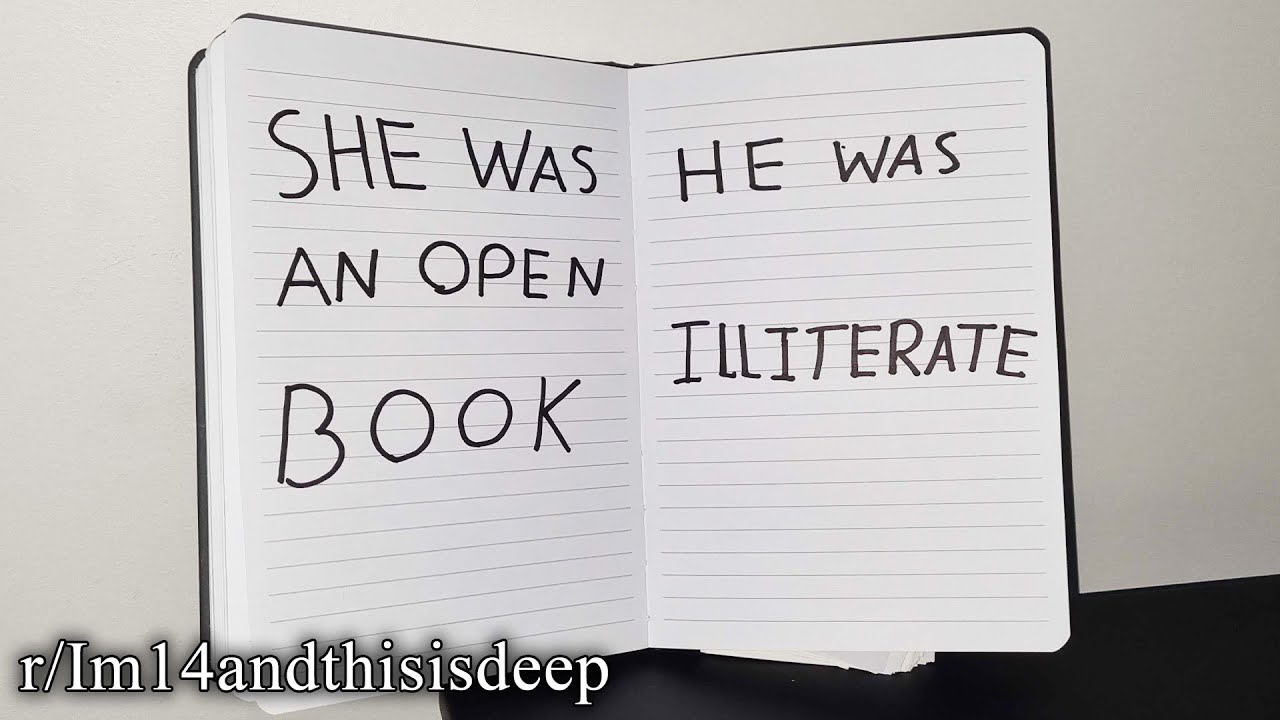 SHE WAS
AN OPEN
BOOK
HE WAS
ILLITERATE
r/Im14andthisisdeep